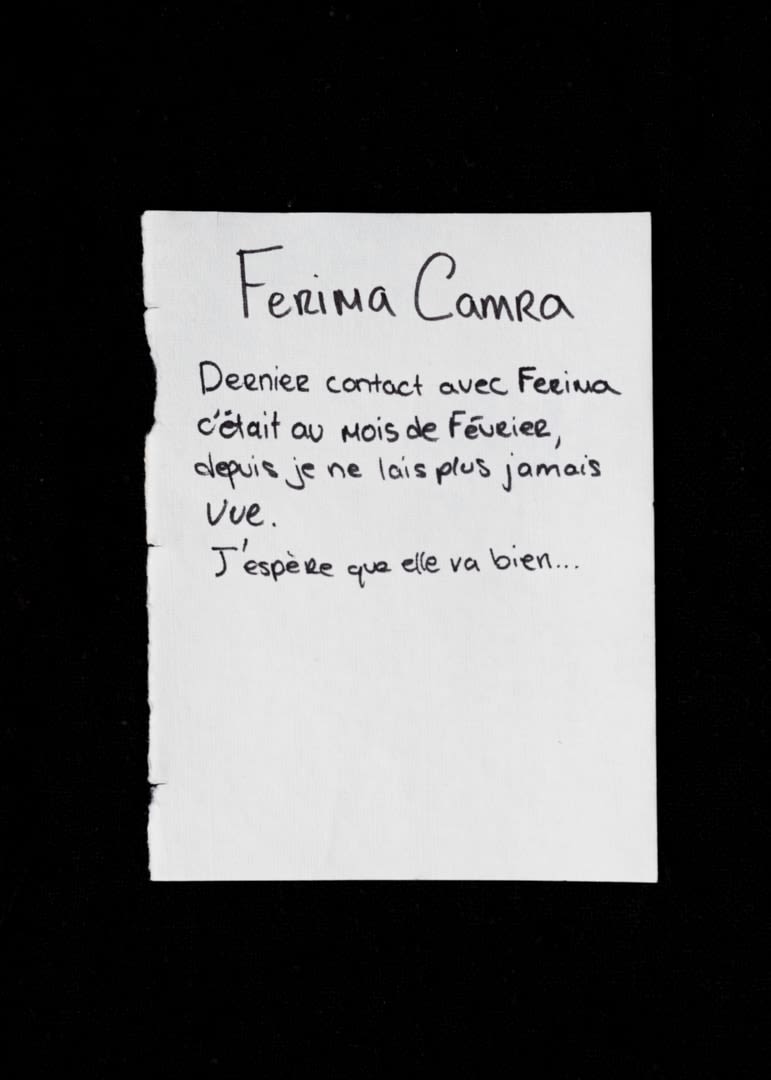 Ferima Camra
Dernier contact avec Ferima
c'était au mois de Février,
depuis je ne lais plus jamais
vue.
J'espère que elle va bien...